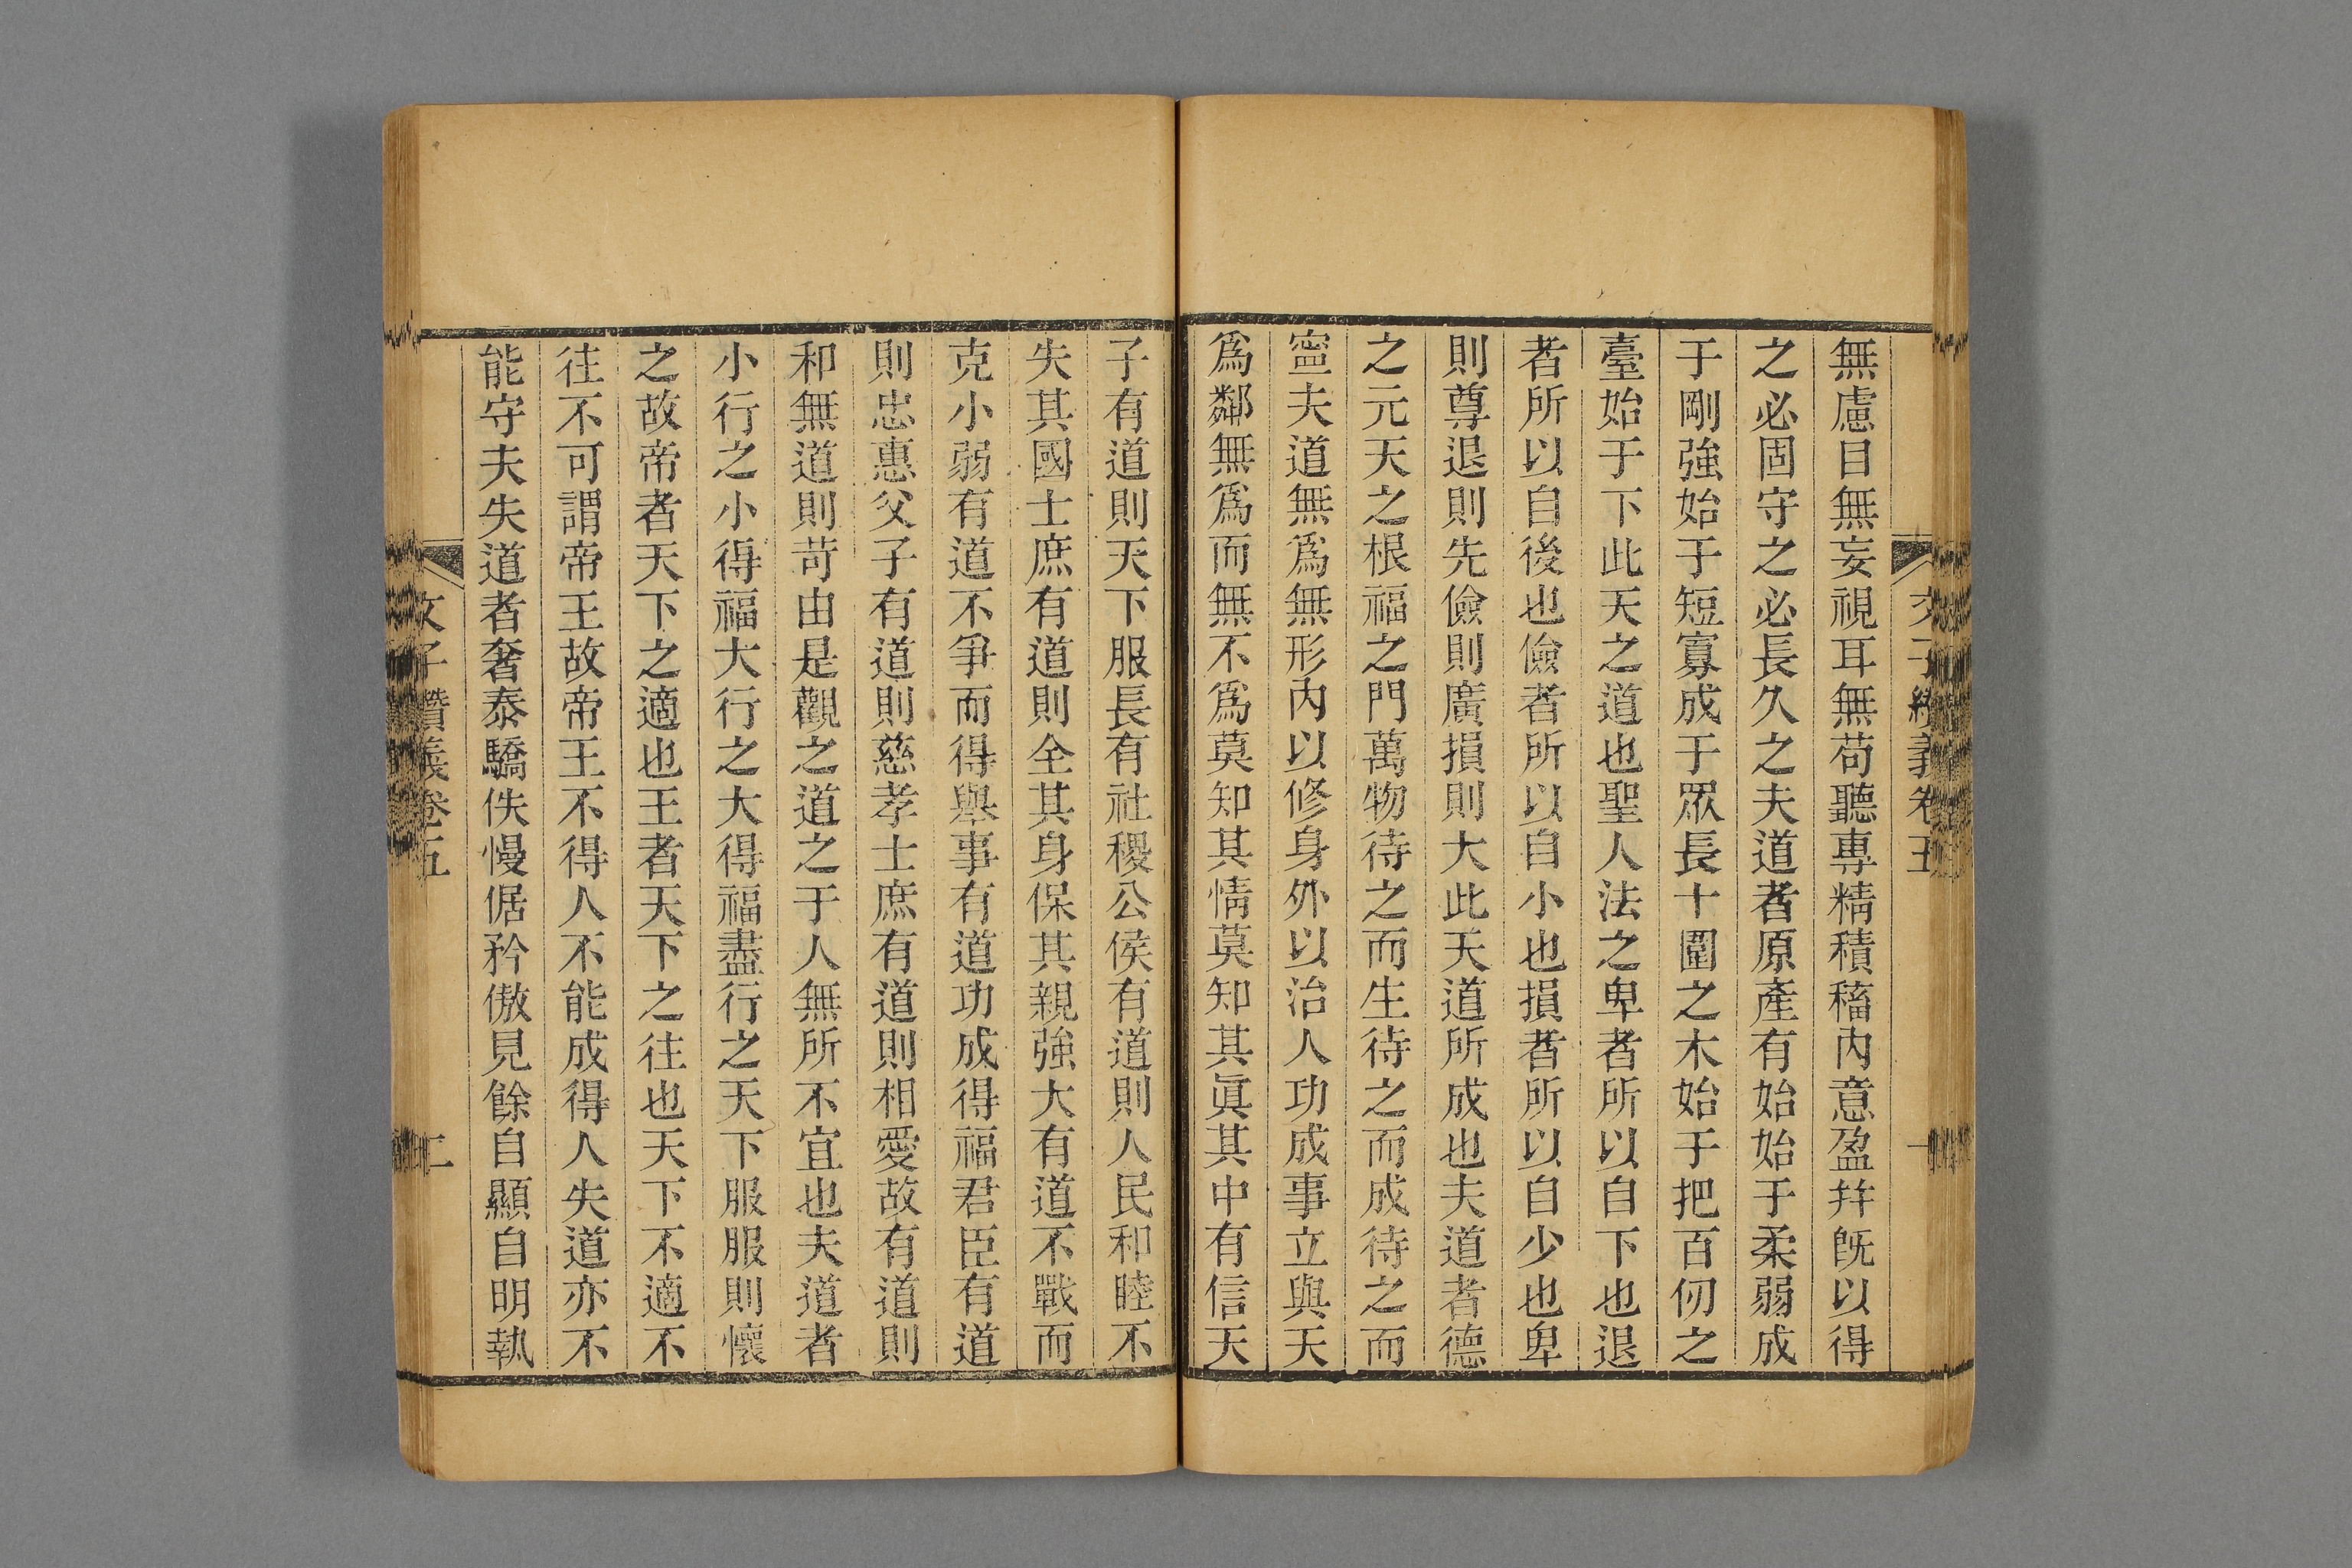 無慮目無妄視耳無苟聽專精積稸內意盈幷旣以得
之必固守之必長久之夫道者原產有始始于柔弱成
于剛強始于短寡成于眾長十圍之木始于把百仞之
臺始于下此天之道也聖人法之卑者所以自下也退
者所以自後也儉者所以自小也損者所以自少也卑
則尊退則先儉則廣損則大此天道所成也夫道者德
之元天之根福之門萬物待之而生待之而成待之而
寍夫道無爲無形內以修身外以治人功成事立與天
爲鄰無爲而無不爲莫知其情莫知其眞其中有信天
子有道則天下服長有社稷公侯有道則人民和睦不
失其國士庶有道則全其身保其親強大有道不戰而
克小弱有道不爭而得舉事有道功成得福君臣有道
則忠惠父子有道則慈孝士庶有道則相愛故有道則
和無道則苛由是觀之道之于人無所不宜也夫道者
小行之小得福大行之大得福盡行之天下服服則懷
之故帝者天下之適也王者天下之往也天下不適不
往不可謂帝王故帝王不得人不能成得人失道亦不
能守夫失道者奢泰驕佚慢倨矜傲見餘自顯自明執
文子纘義卷五 二